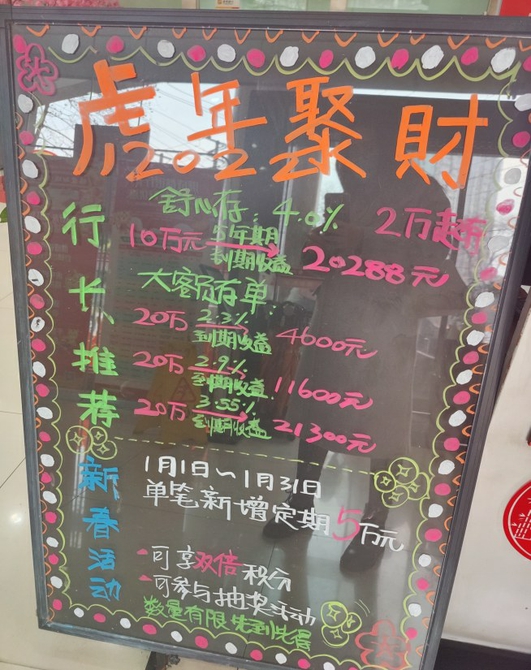 虎年聚財
2022
行长推荐
舒心存：4.0% 2万起存
10万元 5年期 到期收益 20288元
大额存单：
20万 2.3% 到期收益 4600元
20万 2.9% 到期收益 11600元
20万 3.55% 到期收益 21300元
新春活动
1月1日~1月31日
单笔新增定期5万元
可享双倍积分
可参与抽奖活动
数量有限 先到先得